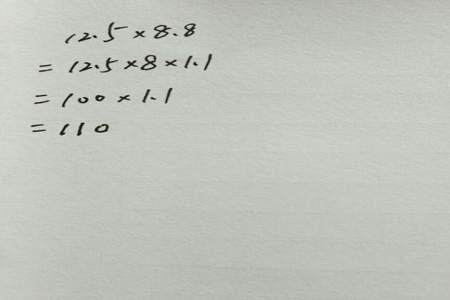 12.5×8.8
=12.5×8×1.1
=100×1.1
=110